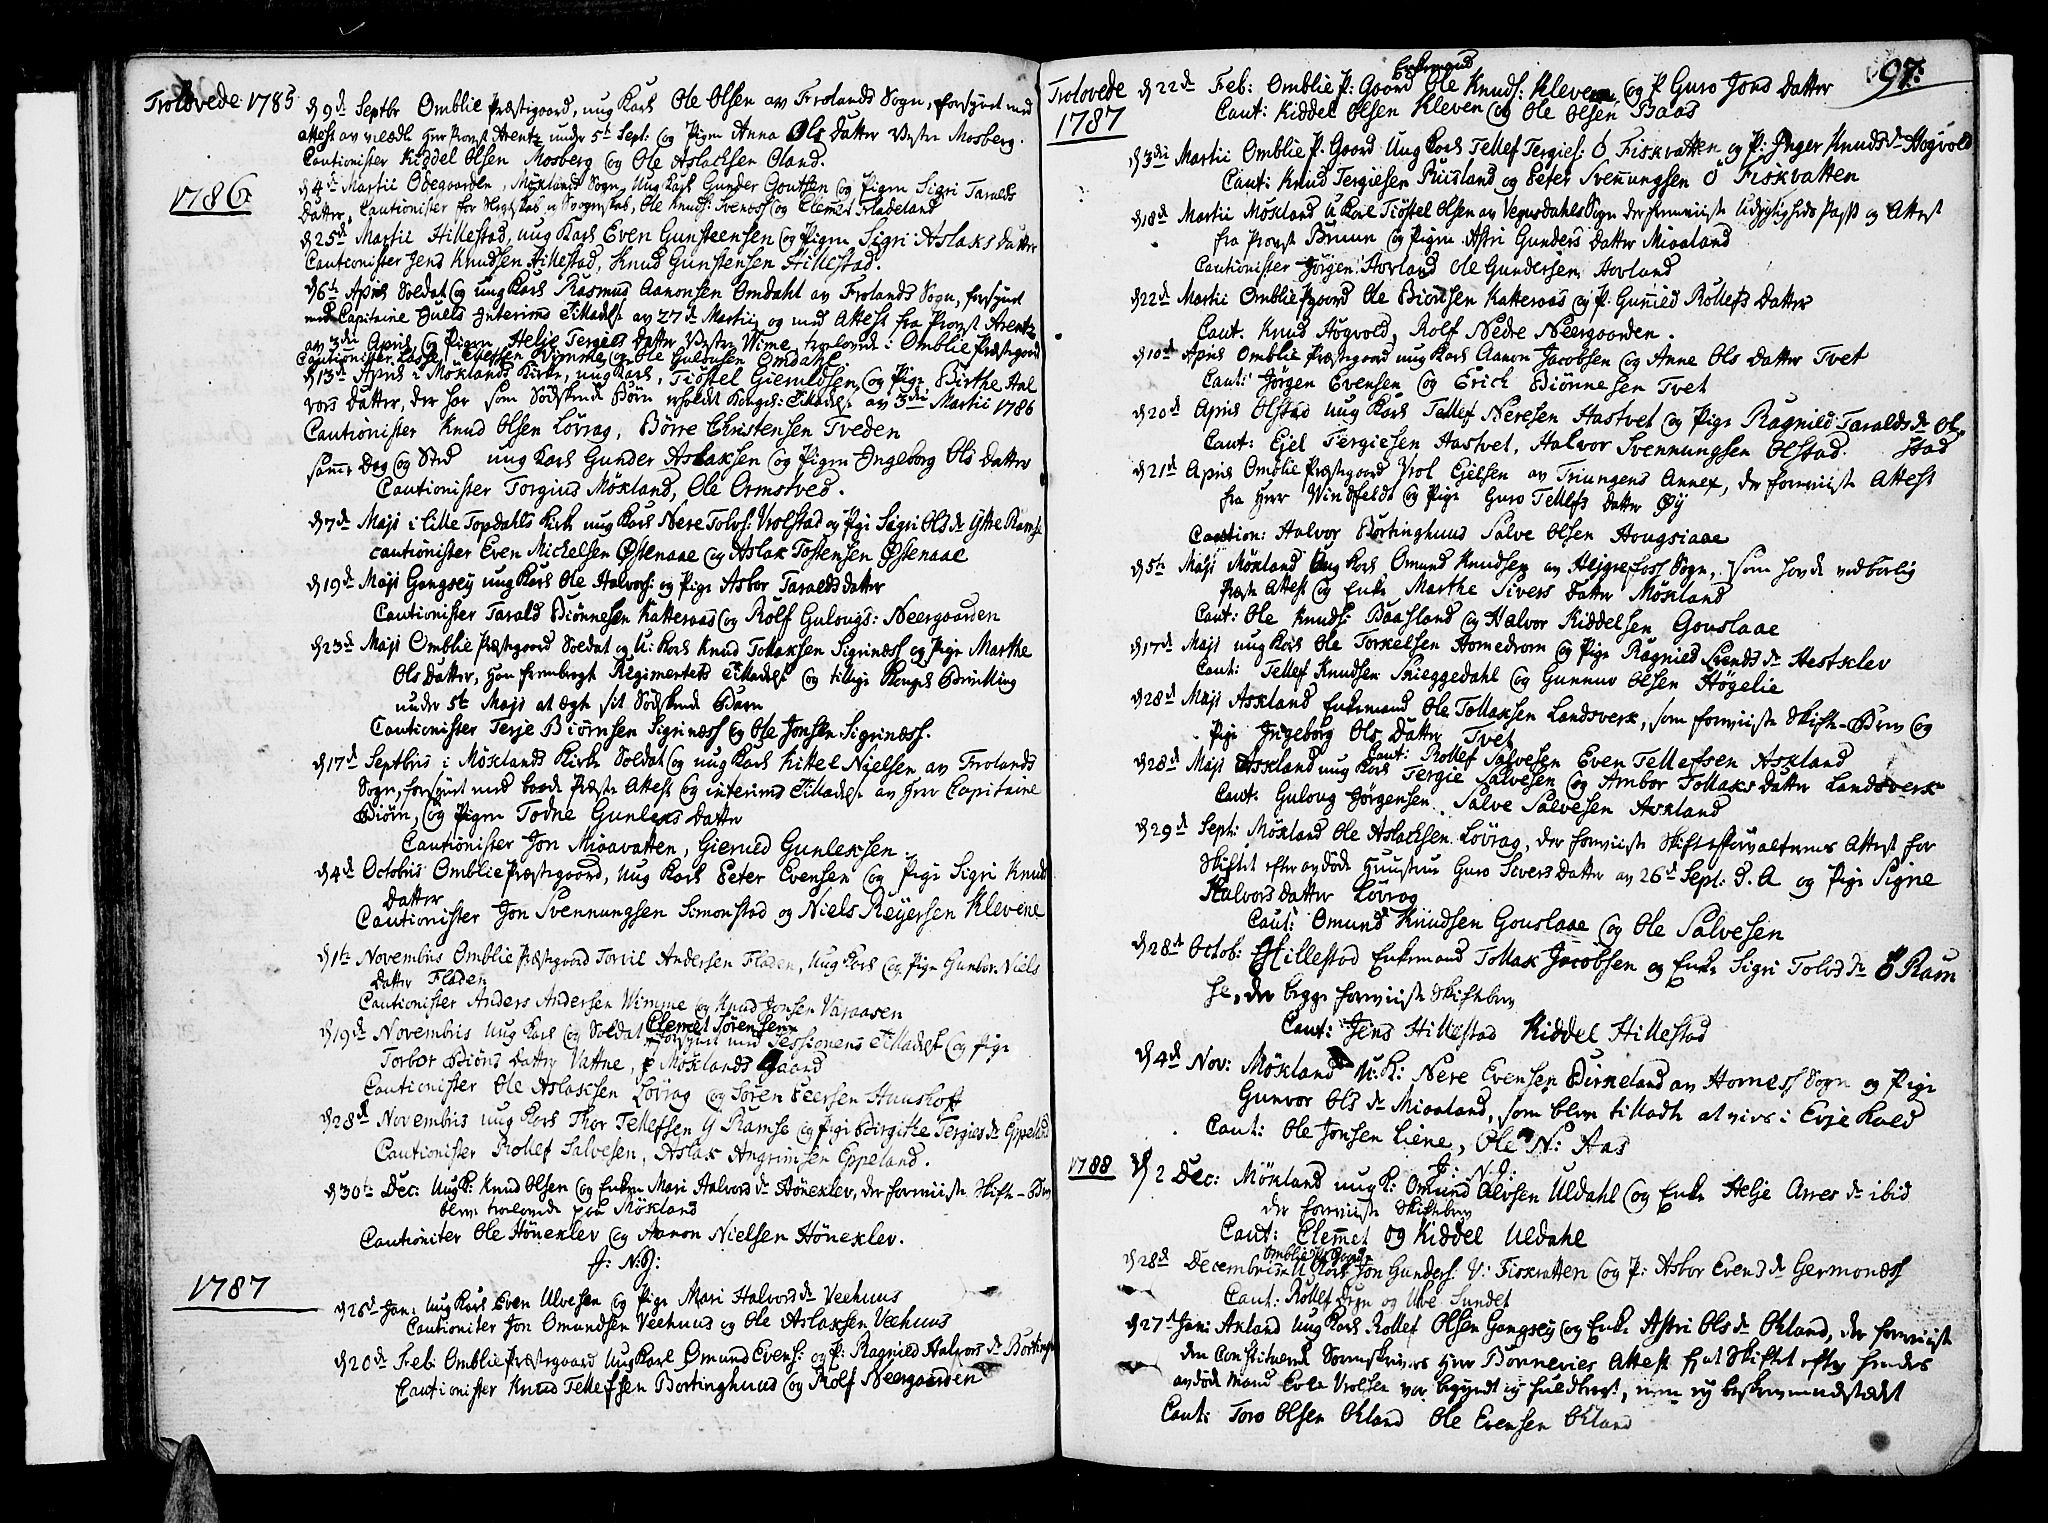 Trolovede 1785
d 9de Septbr Omblie Præstegaard, ung Karl Ole Olsen av Frolands Sogn, forsynet med
attest av velædle Herr Provst Arentz under 5t Sept: og Pigen Anna Ols Datter Vestre Mosberg.
Cautionister Kiddel Olsen Mosberg og Ole Aslachsen Oland.
1786
d 4de Martii Ødegaarden, Møklands Sogn, Ung Karl Gunder Goutsen og Pigen Sigri Taralds
Datter, Cautionister for Slegtskab og Svogerskab, Ole Knuds: Svenøs og Clemet Fladeland
d 25de Martii Hillestad, ung Karl Even Gunsteensen og Pigen Sigri Aslaks Datter
Cautionister Jens Knudsen Hillestad, Knud Gunstensen Hillestad.
d 6te April Soldat og ung Karl Rasmus Aanonsen Omdahl av Frolands Sogn, forsynet
med Capitaine Juels Interims Tilladelse av 27de Martii og med Attest fra Provst Arentz
av 3die April og Pigen Helje Tergies Datter Vestre Wime, trolovede i Omblie Præstegaard
Cautionister Lasse Ellefsen Vimme og Ole Gulovsen Omdahl
d 13de April i Møklands Kirke, ung Karl, Tiøstel Gierulfsen, og Pige Birthe Hal
vors Datter, der har som Sødskende Børn erholdet Kongel: Tilladelse av 3die Martii 1786
Cautionister Knud Olsen Løvrag, Børre Christensen Tveden
samme Dag og Sted ung Karl Gunder Aslaksen og Pigen Ingeborg Ols Datter
Cautionister Torgius Møkland, Ole Ormstved.
d 7de Maji i Lille Topdahls Kirke ung Karl Nere Tolvs: Vrolstad og Pige Sigri Ols dr Ytre Ramse
cautionister Even Michelsen Østenaae og Aslak Tostensen Østenaae
d 19de Maji Gangsey ung Karl Ole Halvors: og Pige Asbor Taralds datter
Cautionister Tarald Biønnesen Katteraas og Rolf Gulougs: Neergaarden
d 23de Maji Omblie Præstegaard Soldat og U: Karl Knud Tollaksen Sigrinæss og Pige Marthe
Ols Datter, hun frembragt Regimentets Tilladelse og tillige Kongel Bevilling
under 5te Maji at ægte sit Sødskende Barn
Cautionister Terje Biørnsen Sigrinæss og Ole Jonsen Sigrinæss.
d 17de Septbris i Møklands Kirke Soldat og ung Karl Kittel Nielsen av Frolands
Sogn, forsynet med baade Præste Attest og interims Tilladelse av Herr Capitaine
Biørn, og Pigen Todne Gunleks Datter
Cautionister Jon Mioavatten, Gierued Gunleksen.
d 4de Octobris Omblie Præstegaard, Ung Karl Peter Evensen og Pige Sigri Knuds
Datter
Cautionister Jon Svennungsen Simonstad og Niels Reyersen Klevene
d 1te Novembris Omblie Præstegaard Torvil Andersen Fladen, Ung Karl og Pige Gunbor Niels
Datter Fladen
Cautionister Anders Andersen Wimme og Knud Jonsen Varaasen
d 19de Novembris Ung Karl og Soldat Clemet Sørensen forsynet med Sessionens Tilladelse og Pige
Torbor Biørns Datter Vattne, p Møklands Gaard
Cautionister Ole Aslachsen Løvrag og Søren Peersen Huushoft
d 28de Novembris ung Karl Thor Tellefsen Y Ramse og Pige Birgitte Tergies dr Eppeland
Cautionister Rollef Salvesen, Aslak Angrimsen Eppeland.
d 30te Dec: Ung K: Knud Olsen og Enken Mari Halvors dr Høneklev, der foreviiste Skifte-Brev
blev trolovede paa Møkland
Cautioniter Ole Høneklev og Aanon Nielsen Høneklev.
J: N: J:
1787
d 26de Jan: Ung Karl Even Ulvesen og Pige Mari Halvors dr Veehuus
Cautioniter Jon Omundsen Veehuus og Ole Aslaksen Veehuus
d 20de Feb: Omblie Præstegaard Ung Karl Omund Evens: og P: Ragnild Halvors dr Borting
Cautionister Knud Tellefsen Bortinghuus og Rolf Neergaarden
97.
Trolovede
1787
d 22de Feb: Omblie P: Gaard Enkemand Ole Knuds: Kleven, og P Guro Jons Datter
Caut: Kiddel Olsen Kleven og Ole Olsen Baas
d 3die Martii Omblie P. Gaard Ung Karl Tellef Tergies: Ö Fiskvatten og P: Inger Knuds dr Høgvold
Caut: Knud Tergiesen Riisland og Peter Svennungsen Ö Fiskvatten
d 18de Martii Møkland U Karl Tiøstel Olsen av Vegusdahls Sogn der foreviiste Udygtigheds Pass og Attest
fra Provst Bruun og Pigen Astri Gunders Datter Mioaland
Cautionister Jørgen Hovland Ole Gundersen Hovland
d 22de Martii Omblie Pgaard Ole Biørnsen Katteraas og P: Gunild Rollefs Datter
Caut. Knud Høgvold, Rolf Nedre Neergaarden.
d 10de April Omblie Præstegaard ung Karl Aanon Jacobsen og Anne Ols Datter Tvet
Caut: Jørgen Evensen og Erich Biønnesen Tvet
d 20de April Olstad ung Karl Tellef Neresen Hastvet og Pige Ragnild Taralds dr Ol
Caut: Ejel Tergiesen Hastvet, Halvor Svennungsen Olstad. stad
d 21de April Omblie Præstegaard Vrol Ejelsen av Triungens Annex, der foreviiste Attest
fra Herr Windfeldt og Pige Guro Tellefs Datter Øy
Caution: Halvor Bortinghuus Salve Olsen Hougsiaae
d 5te Maji Møkland Ung Karl Omund Knudsen av Hejgrefoss Sogn, som havde vedbørlig
Præste Attest og Enke Marthe Sivers Datter Møkland
Caut: Ole Knuds: Baasland og Halvor Kiddelsen Gouslaae
d 17de Maji ung Karl Ole Torkelsen Homedrom og Pige Ragnied Svends dr Hestklev
Caut: Tellef Knudsen Skieggedahl og Gunnur Olsen Høgelie
d 28de Maji Askland Enkemand Ole Tollaksen Landsverk, som foreviiste Skifte-Brev og
Pige Ingeborg Ols Datter Tvet
Caut: Rollef Salvesen Even Tellefsen Askland
d 28de Maji Askland ung Karl Tergie Salvesen og Ambor Tollaks Datter Landsverk
Caut: Guloug Jørgensen, Salve Salvesen Askland
d 29de Sept: Møkland Ole Aslachsen Løvrag, der foreviiste Skifteforvalterens Attest for
Skiftet efter avdøde Huustrue Guro Sivers Datter av 26de Sept: d. A og Pige Signe
Halvors Datter Løvrag
Caut: Omund Knudsen Gouslaae og Ole Salvesen
d 28de Octob: Hillestad Enkemand Tollak Jacobsen og Enke Sigri Tolvs dr Ö Ram
se, der begge foreviiste Skiftebrev
Caut: Jens Hillestad Kiddel Hillestad
d 4de Nov: Møkland U: K: Nere Evensen Birkeland av Hornes Sogn og Pige
Gunvor Ols dr Mioaland, som blev tilladte at vies i Evje Kald
Caut: Ole Jonsen Liene, Ole N: Aas
J: N: J:
1788
d 2 Dec: Møkland ung K: Omund Olvsen Uldahl og Enke Helje Arres dr ibid
der foreviiste Skiftebrev
Caut: Clemet og Kiddel Uldahl
d 28de Decembris Omblie P Gaard U Karl Jon Gunders: V: Fiskvatten og P: Asbor Evens dr Germonæss
Caut: Rollef Dygn og Uve Sundet
d 27de Jan: Axland Ung Karl Rollef Olsen Gangsey og Enke Astri Ols dr Okland, der foreviiste
den Constituerede Sorenskrivers Herr Bonnevies Attest f at Skiftet efter hendes
avdøde Mand Evle Vrolsen var begyndt og fuldbragt, men ey beskrevet
Caut: Toro Olsen Okland Ole Evensen Okland